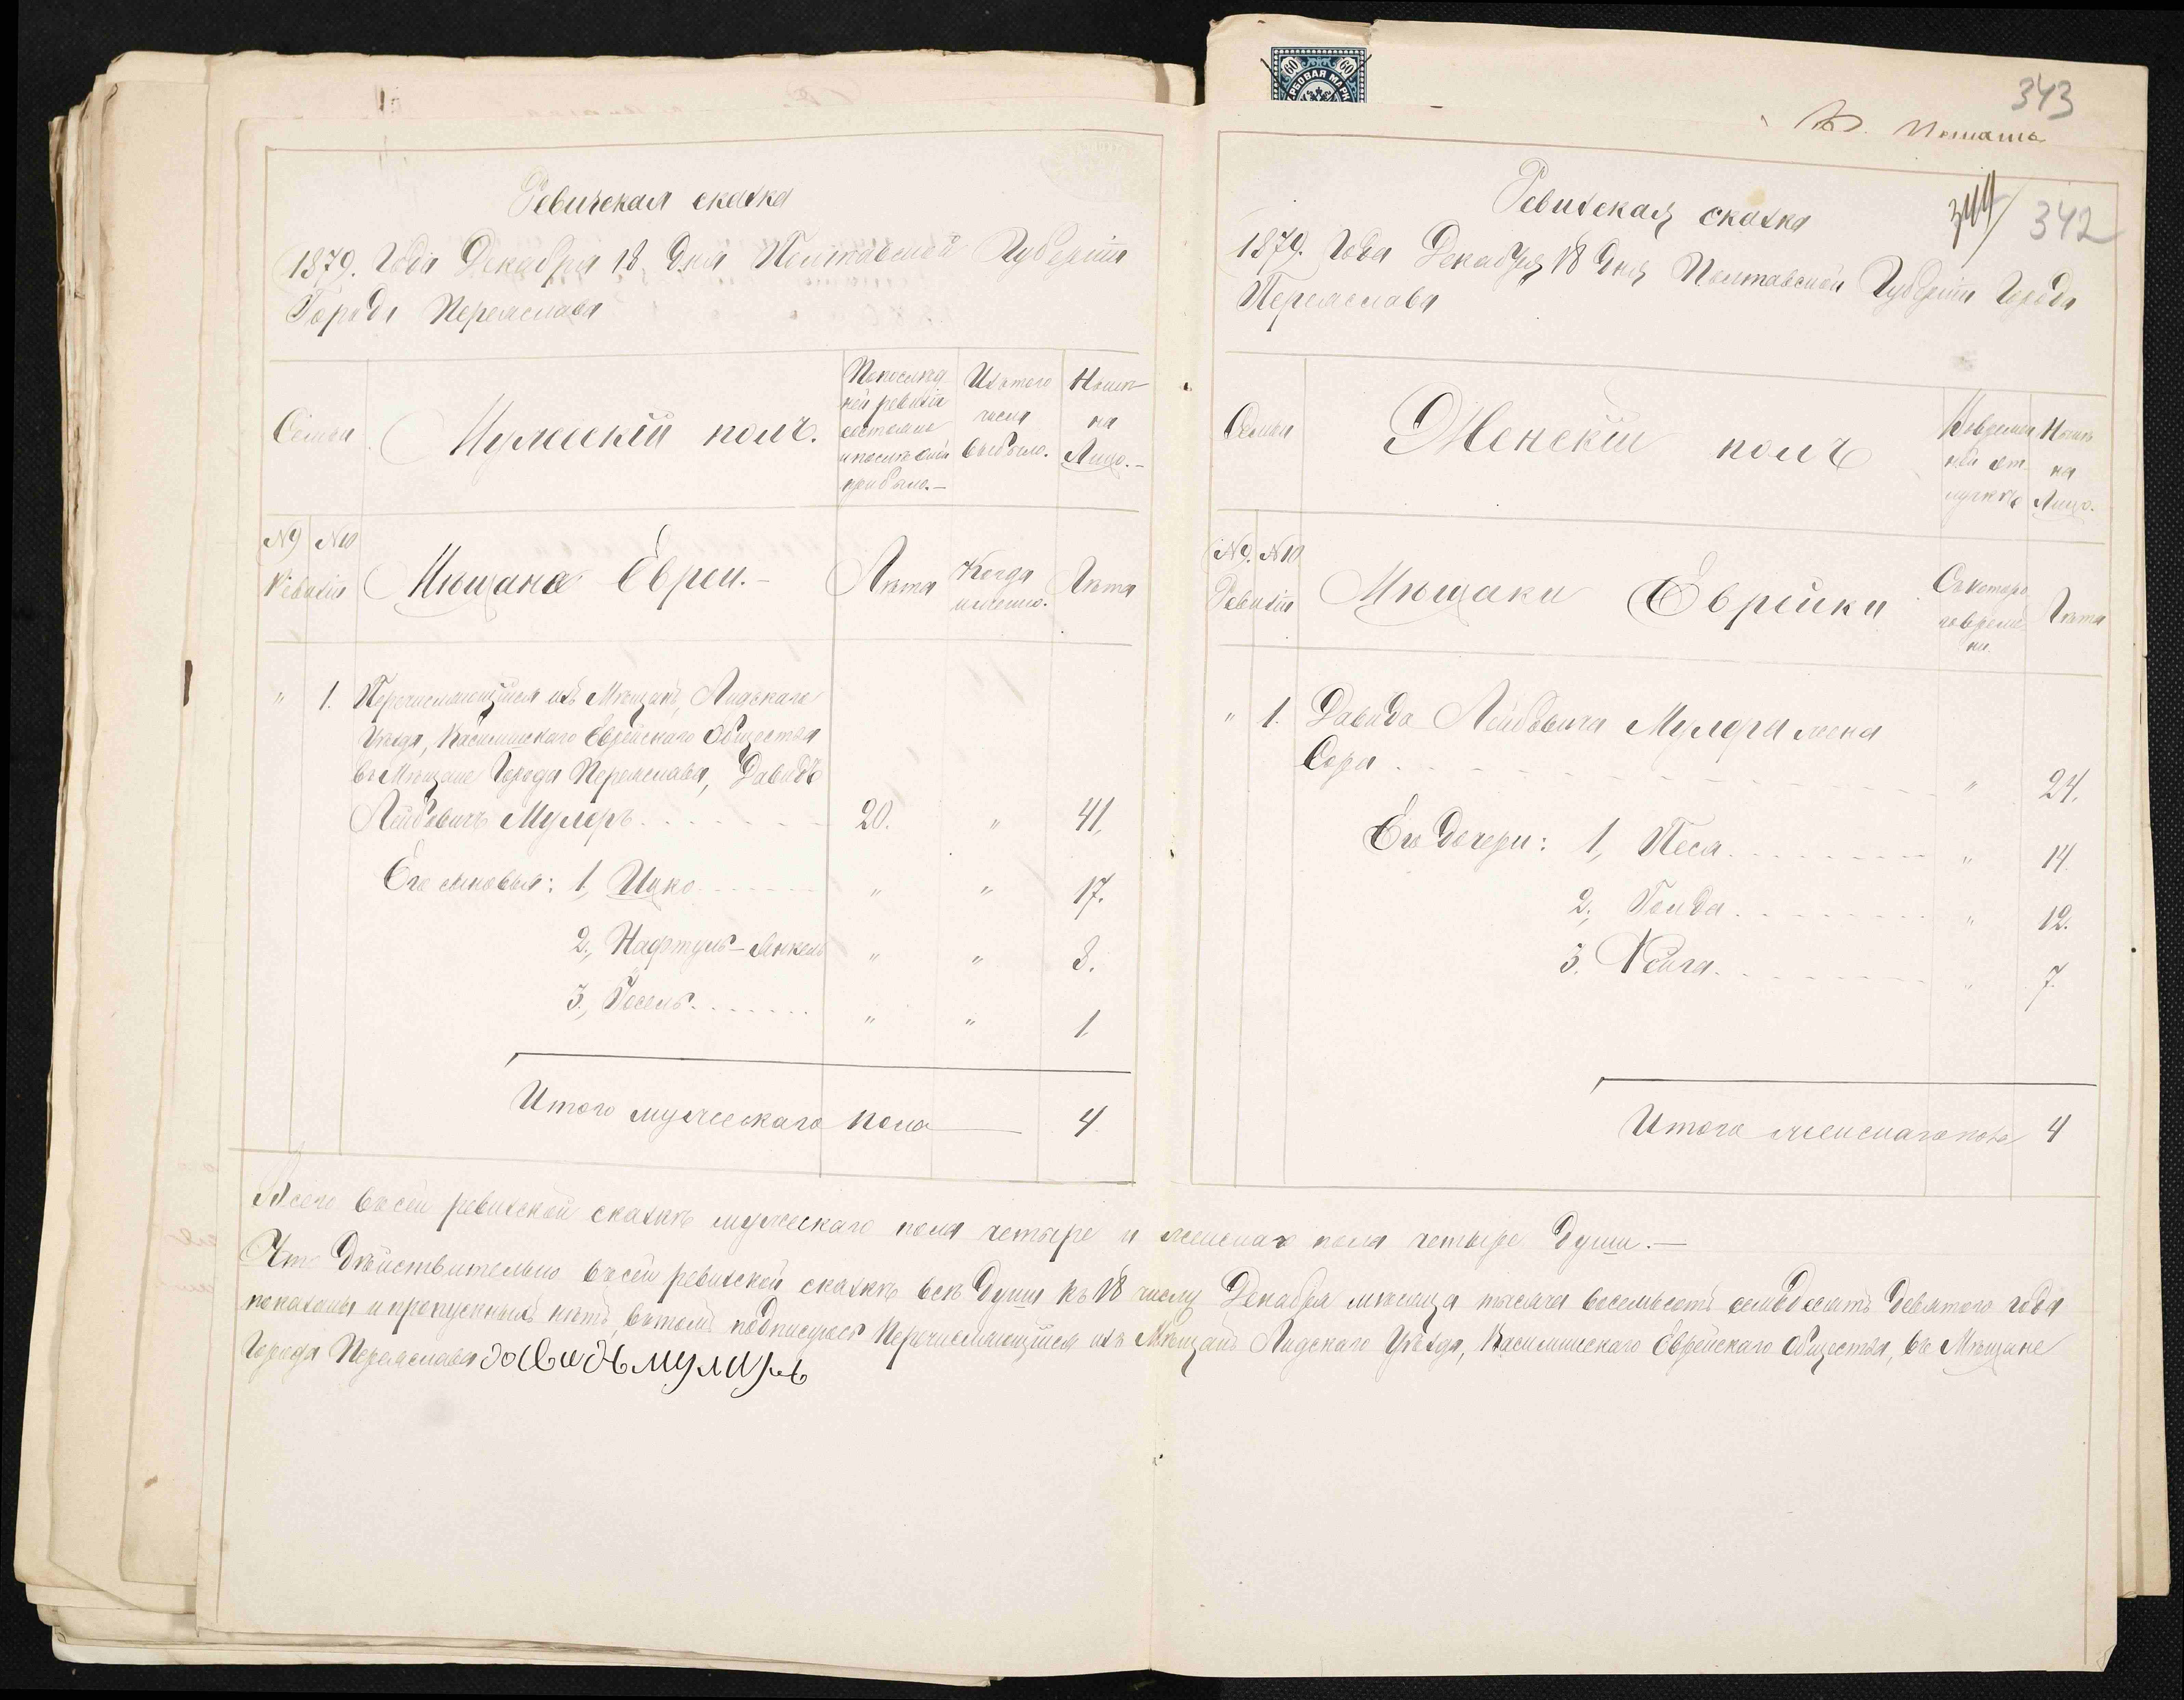 Ревизская сказка
1879. Года Декабря 18 дня Полтавской Губерніи
Города Переяслава
Семьи
Мужескій полъ.
По послед
ней ревизіи
состояло
и после оной
прибыло.—
Изъ того
числа
выбыло.
Ныне
на
Лицо.—
№9 №10
Ревизіи
Мѣщане Евреи.—
Лѣта
Когда
именно.
Лѣта
" 1. Перечисляющійся изъ Мѣщанъ, Лидскаго
Уѣзда, Василишскаго Еврейскаго Общества
въ Мѣщане Города Переяслава, Давидъ
Лейбовичъ Мулеръ. 20. " 41.
Его сыновья: 1, Ицко " " 17.
2., Нафтуль-Янкель " " 8.
3., Іосель " " 1.
Итого мужескаго пола — 4
60 60
343
344 342
Ревизская сказка
1879. Года Декабря 18 дня Полтавской Губерніи Города
Переяслава
Семьи
Женскій полъ
Во времен
ной от
лучкѣ
Нынѣ
на
Лицо.
№9. №10.
Ревизіи
Мѣщанки Еврейки
Съ котора
го време
ни.
Лѣта
" 1. Давида Лейбовича Мулера жена
Сора " 24.
Его дочери: 1, Песа " 14.
2., Голда " 12.
3. Хейга " 7.
Итого женскаго пола 4
Всего въ сей ревизской сказкѣ мужескаго пола четыре и женскаго пола четыре души.—
Что дѣйствительно въ сей ревизской сказкѣ всѣ души къ 18 числу Декабря мѣсяца тысяча восемьсотъ семьдесятъ девятого года
показаны и пропускныхъ нѣтъ, въ томъ подписуюсь Перечисляющійся изъ Мѣщанъ Лидскаго Уѣзда, Василишскаго Еврейскаго Общества, въ Мѣщане
Города Переяслава Давидъ Мулиръ